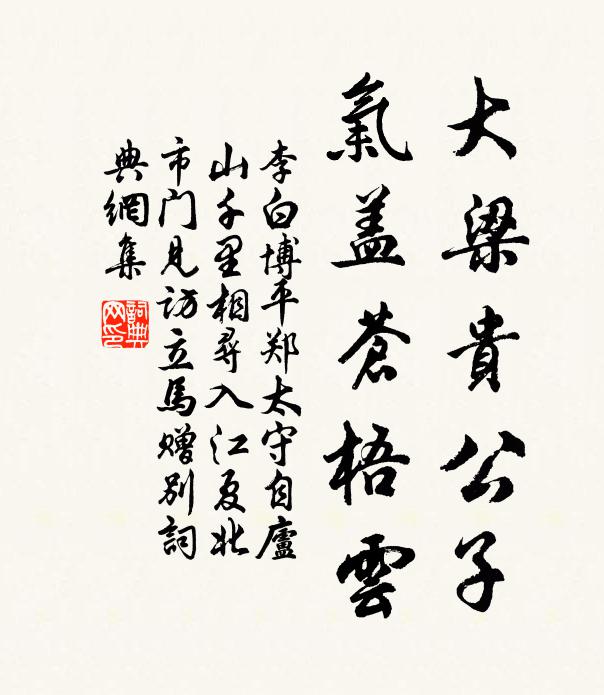 大梁貴公子
氣蓋蒼梧雲
李白博平郑太守自廬
山千里相尋入江夏北
市门見访立馬贈別詞
典網集
詞典网印